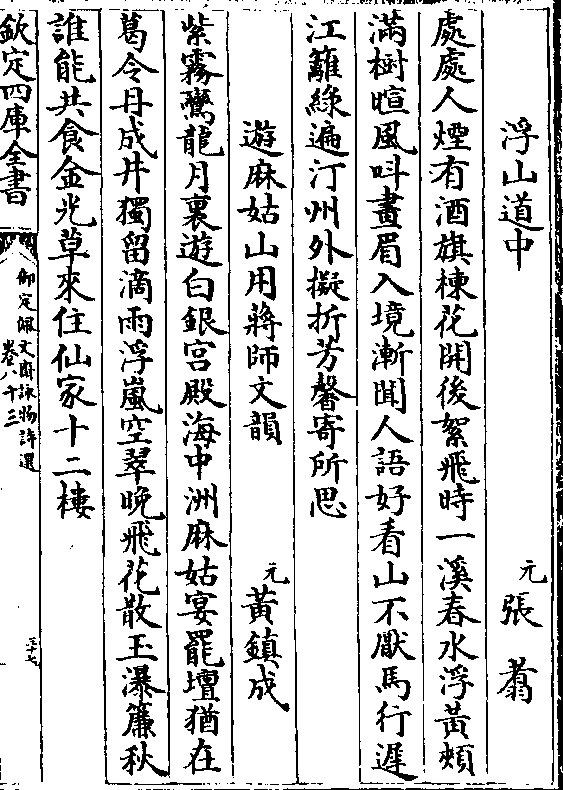 浮山道中　元　張翥
處處人煙有酒旗楝花開後絮飛時一溪春水浮黃頰
滿樹暄風叫畫眉入境漸聞人語好看山不厭馬行遲
江蘺綠遍汀州外擬折芳馨寄所思
遊麻姑山用蔣師文韻　元　黃鎮成
紫霧鸞龍月裏遊白銀宮殿海中洲麻姑宴罷壇猶在
葛令丹成井獨留滴雨浮嵐空翠晚飛花散玉瀑簾秋
誰能共食金光草來住仙家十二樓
欽定四庫全書
御定佩文齋詠物詩選
卷八十三
三十七